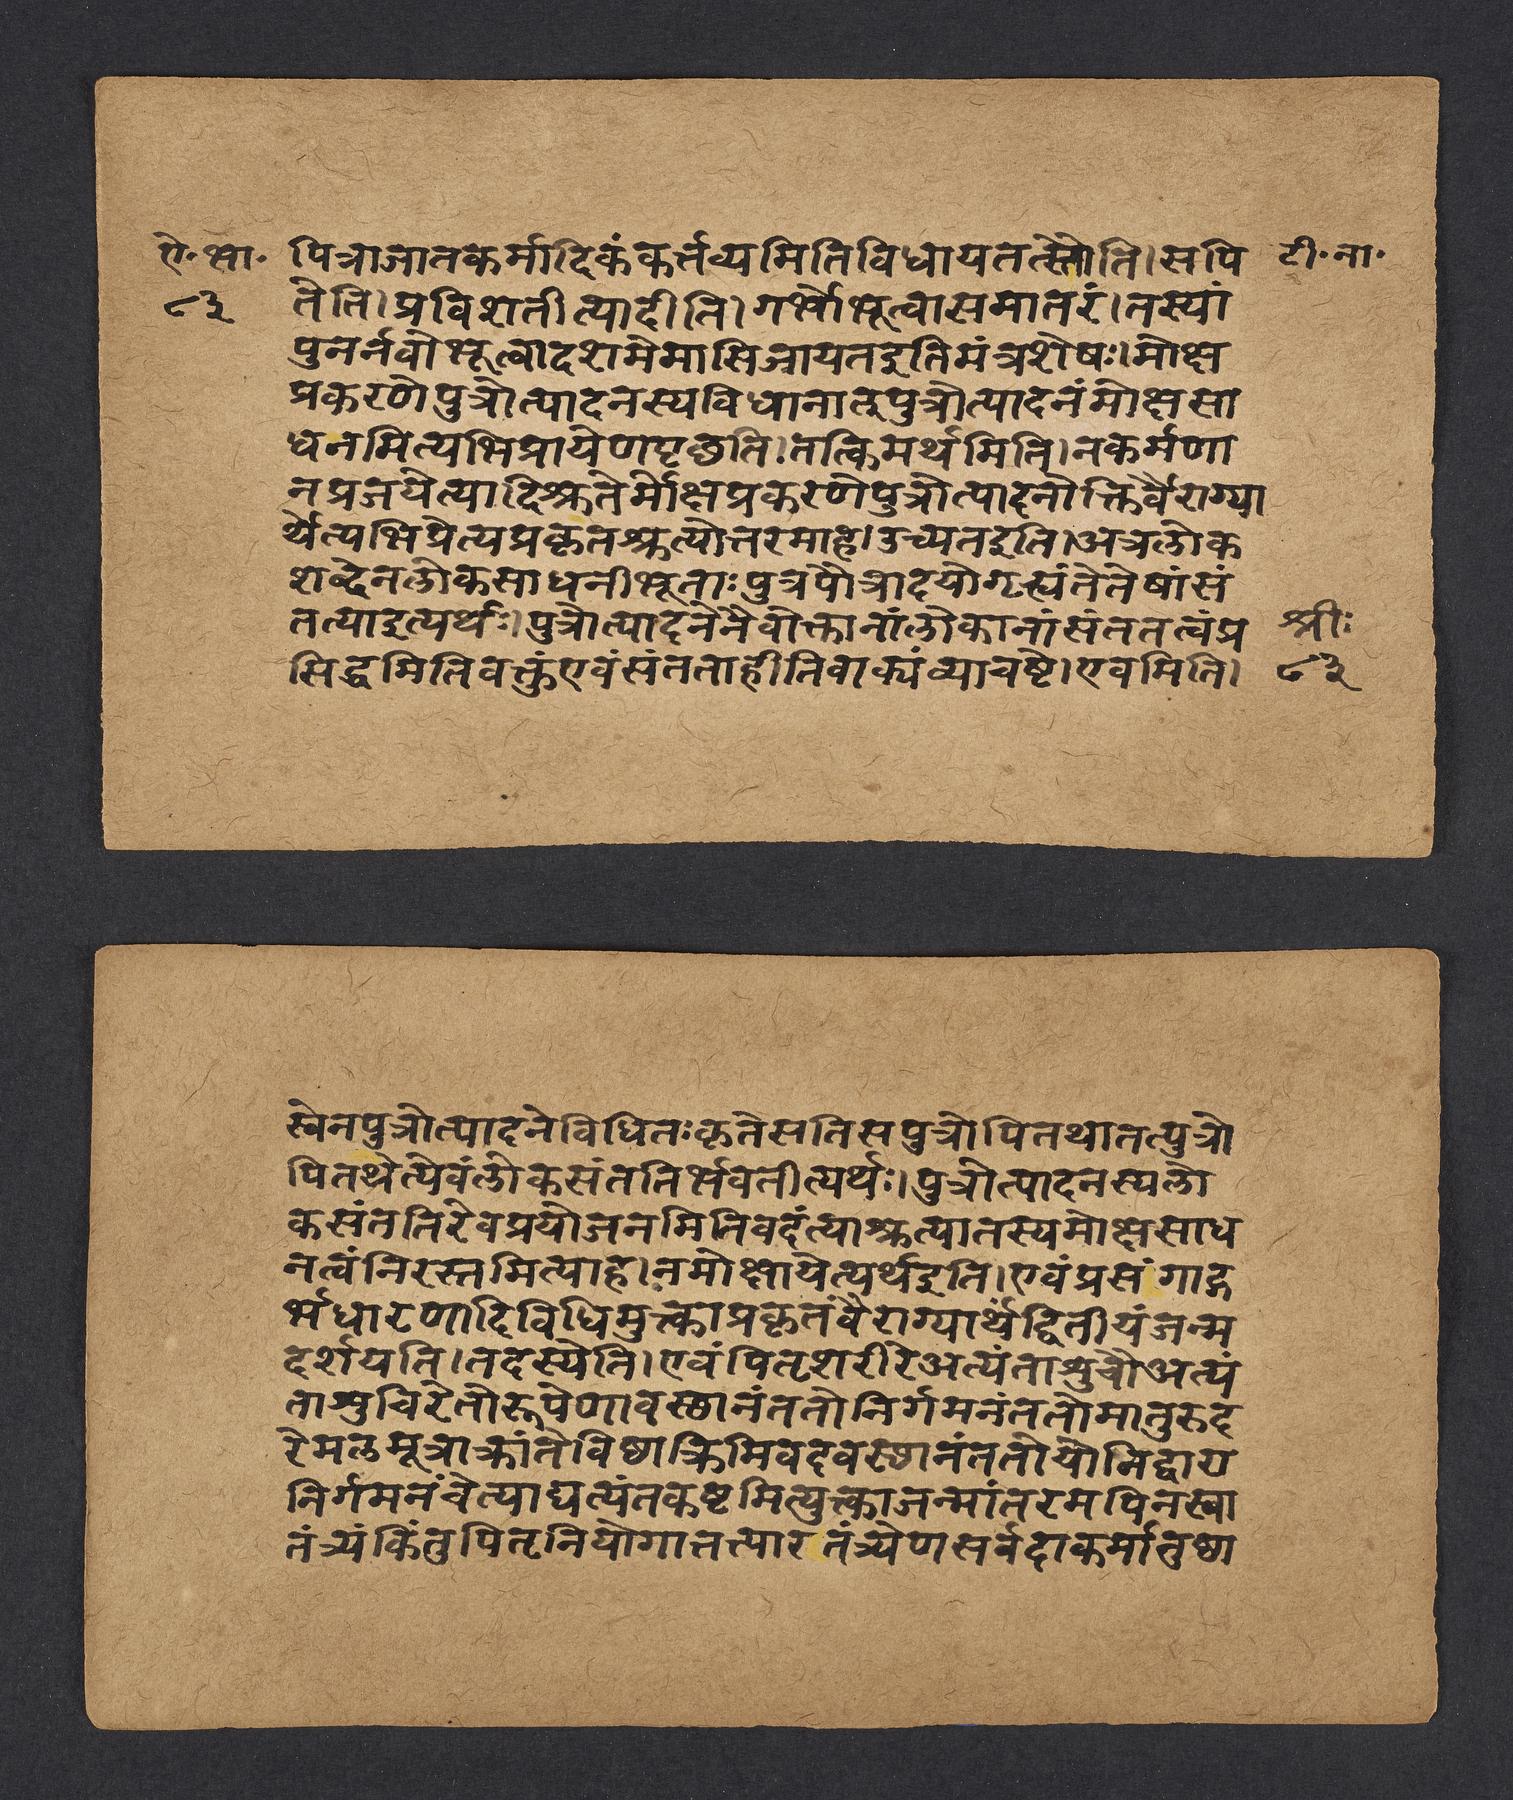 ऐ·भा· पित्राजातकर्मादिकंकर्त्तव्यमितिविधायतत्स्तौति।सपि टी·ना·
८३ तेति।प्रविशतीत्यादीति।गर्भोभूत्वासमातरं।तस्यां
पुनर्नवोभूत्वादशमेमासिजायतइतिमंत्रशेषः।मोक्ष
प्रकरणेपुत्रोत्पादनस्यविधानात्पुत्रोत्पादनंमोक्षसा
धनमित्यभिप्रायेणपृछति।तत्किमर्थमिति।नकर्मणा
नप्रजयेत्यादिश्रुतेर्मोक्षप्रकरणेपुत्रोत्पादनोक्तिर्वैराग्या
र्थेत्यभिप्रेत्यप्रकृतश्रुत्योत्तरमाह।उच्यतइति।अत्रलोक
शब्देनलोकसाधनीभूताःपुत्रपौत्रादयोगृह्यंतेतेषांसं
तत्याइत्यर्थः।पुत्रोत्पादनेनैवोक्तानांलोकानांसंततत्वंप्र श्रीः
सिद्धमितिवक्तुंएवंसंतताहीतिवाक्यंव्याचष्टे।एवमिति। ८३
स्वेनपुत्रोत्पादनेविधितःकृतेसतिसपुत्रोपितथातत्पुत्रो
पितथेत्येवंलोकसंततिर्भवतीत्यर्थः।पुत्रोत्पादनस्यलो
कसंततिरेवप्रयोजनमितिवदंत्याश्रुत्यातस्यमोक्षसाध
नत्वंनिरस्तमित्याह।नमोक्षायेत्यर्थइति।एवंप्रसंगाद्ग
र्भधारणादिविधिमुक्त्काप्रकृतंवैराग्यार्थंद्वितीयंजन्म
दर्शयति।तदस्येति।एवंपितृशरीरेअत्यंताशुचौअत्यं
ताशुचिरेतोरूपेणावस्छानंततोनिर्गमनंततोमातुरुद
रेमलमूत्राक्रांतेविष्ठाक्रिमिवदवस्छानंततोयोनिद्वारा
निर्गमनंचेत्याद्यत्यंतकष्टमित्युक्त्काजन्मांतरमपिनस्वा
तंत्र्यंकिंतुपितृनियोगात्तत्पारतंत्र्येणसर्वदाकर्मानुष्ठा